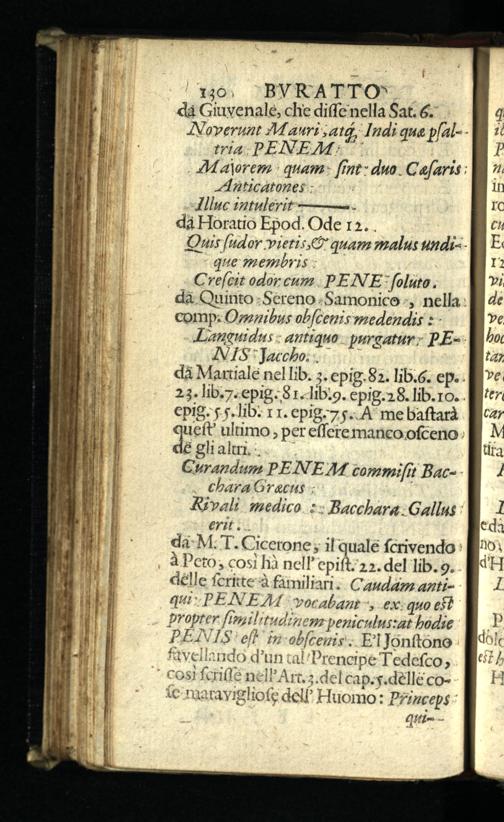 130 BVRATTO
da Giuvenale, che disse nella Sat. 6.
Noverunt Mauri, atq; Indi quæ psal-
tria PENEM
Majorem quam sint duo Cæsaris
Anticatones
Illuc intulerit ———.
da Horatio Epod. Ode 12.
Quis sudor vietis, & quam malus undi-
que membris
Crescit odor cum PENE soluto.
da Quinto Sereno Samonico, nella
comp. Omnibus obscenis medendis:
Languidus antiquo purgatur PE-
NIS Jaccho.
da Martiale nel lib. 3. epig. 82. lib. 6. ep.
23. lib. 7. epig. 81. lib. 9. epig. 28. lib. 10.
epig. 55. lib. 11. epig. 75. A' me bastarà
quest' ultimo, per essere manco osceno
de gli altri.
Curandum PENEM commisit Bac-
chara Græcus
Rivali medico: Bacchara Gallus
erit.
da M. T. Cicerone, il quale scrivendo
à Peto, così hà nell' epist. 22. del lib. 9.
delle scritte à familiari. Caudam anti-
qui PENEM vocabant, ex quo est
propter similitudinem peniculus: at hodie
PENIS est in obscenis. E'l Jonstono
favellando d'un tal Prencipe Tedesco,
così scrisse nell' Art. 3. del cap. 5. delle co-
se maravigliose dell' Huomo: Princeps
qui-